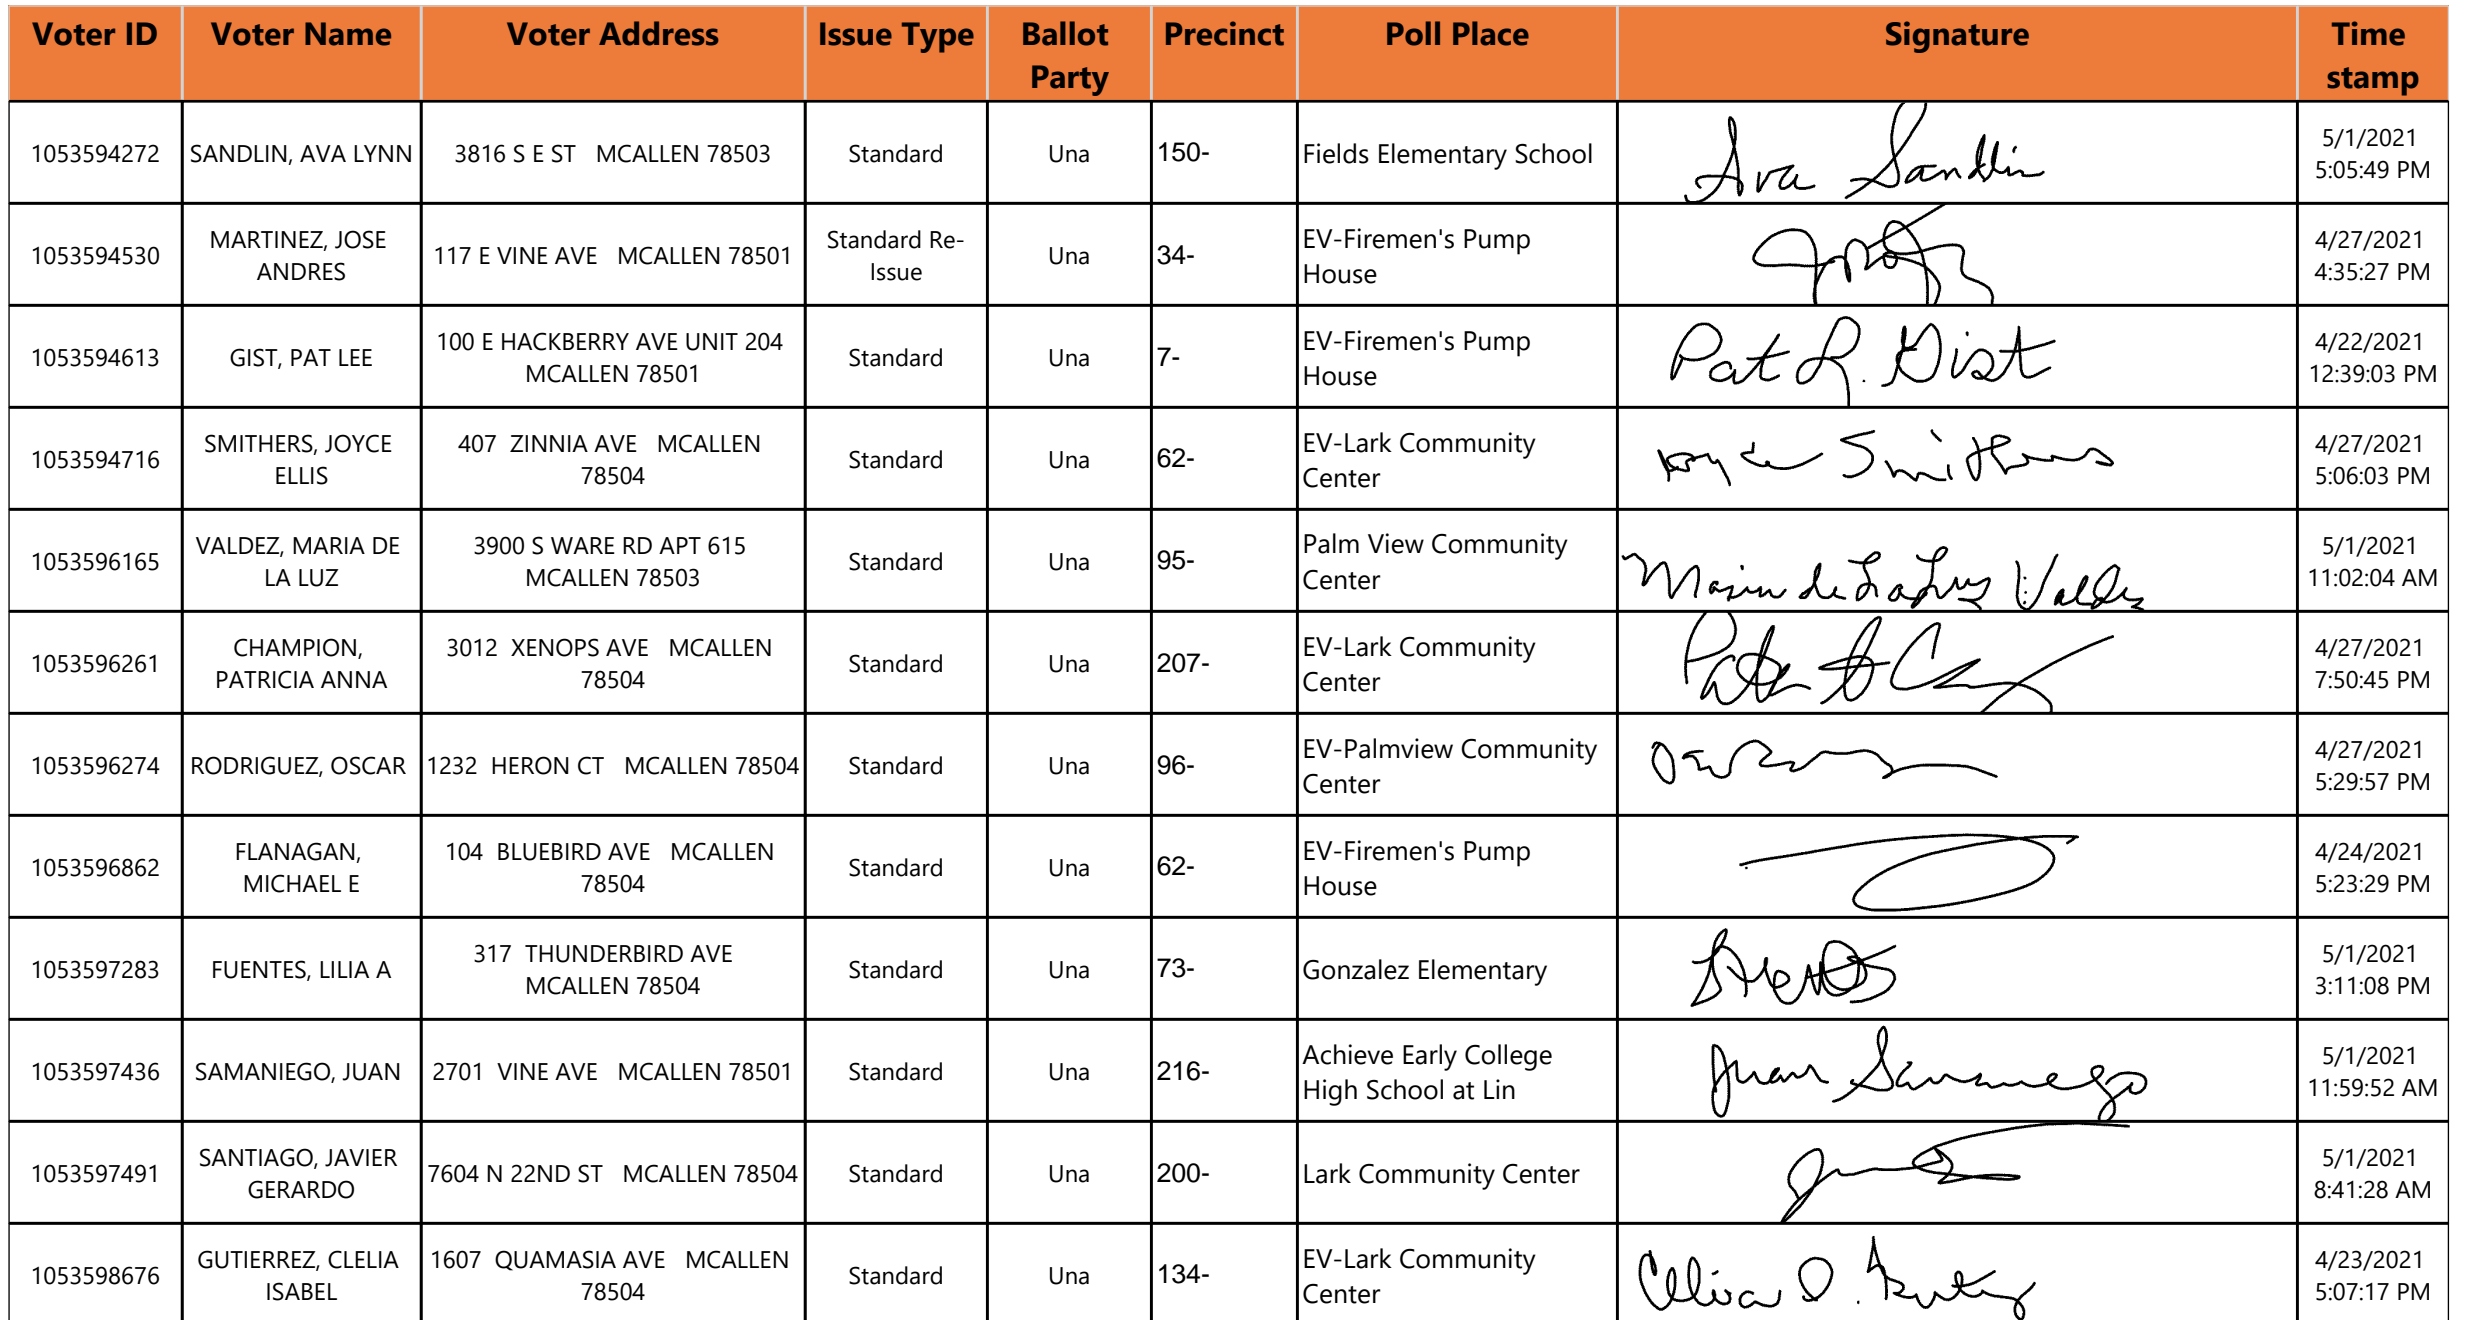 Voter ID Voter Name Voter Address Issue Type Ballot Party Precinct Poll Place Signature Time stamp
1053594272 SANDLIN, AVA LYNN 3816 S E ST MCALLEN 78503 Standard Una 150- Fields Elementary School Ava Sandlin 5/1/2021 5:05:49 PM
1053594530 MARTINEZ, JOSE ANDRES 117 E VINE AVE MCALLEN 78501 Standard Re-Issue Una 34- EV-Firemen's Pump House 4/27/2021 4:35:27 PM
1053594613 GIST, PAT LEE 100 E HACKBERRY AVE UNIT 204 MCALLEN 78501 Standard Una 7- EV-Firemen's Pump House Pat L. Gist 4/22/2021 12:39:03 PM
1053594716 SMITHERS, JOYCE ELLIS 407 ZINNIA AVE MCALLEN 78504 Standard Una 62- EV-Lark Community Center Joyce Smithers 4/27/2021 5:06:03 PM
1053596165 VALDEZ, MARIA DE LA LUZ 3900 S WARE RD APT 615 MCALLEN 78503 Standard Una 95- Palm View Community Center Maria de La Luz Valdez 5/1/2021 11:02:04 AM
1053596261 CHAMPION, PATRICIA ANNA 3012 XENOPS AVE MCALLEN 78504 Standard Una 207- EV-Lark Community Center 4/27/2021 7:50:45 PM
1053596274 RODRIGUEZ, OSCAR 1232 HERON CT MCALLEN 78504 Standard Una 96- EV-Palmview Community Center 4/27/2021 5:29:57 PM
1053596862 FLANAGAN, MICHAEL E 104 BLUEBIRD AVE MCALLEN 78504 Standard Una 62- EV-Firemen's Pump House 4/24/2021 5:23:29 PM
1053597283 FUENTES, LILIA A 317 THUNDERBIRD AVE MCALLEN 78504 Standard Una 73- Gonzalez Elementary 5/1/2021 3:11:08 PM
1053597436 SAMANIEGO, JUAN 2701 VINE AVE MCALLEN 78501 Standard Una 216- Achieve Early College High School at Lin Juan Samaniego 5/1/2021 11:59:52 AM
1053597491 SANTIAGO, JAVIER GERARDO 7604 N 22ND ST MCALLEN 78504 Standard Una 200- Lark Community Center 5/1/2021 8:41:28 AM
1053598676 GUTIERREZ, CLELIA ISABEL 1607 QUAMASIA AVE MCALLEN 78504 Standard Una 134- EV-Lark Community Center 4/23/2021 5:07:17 PM